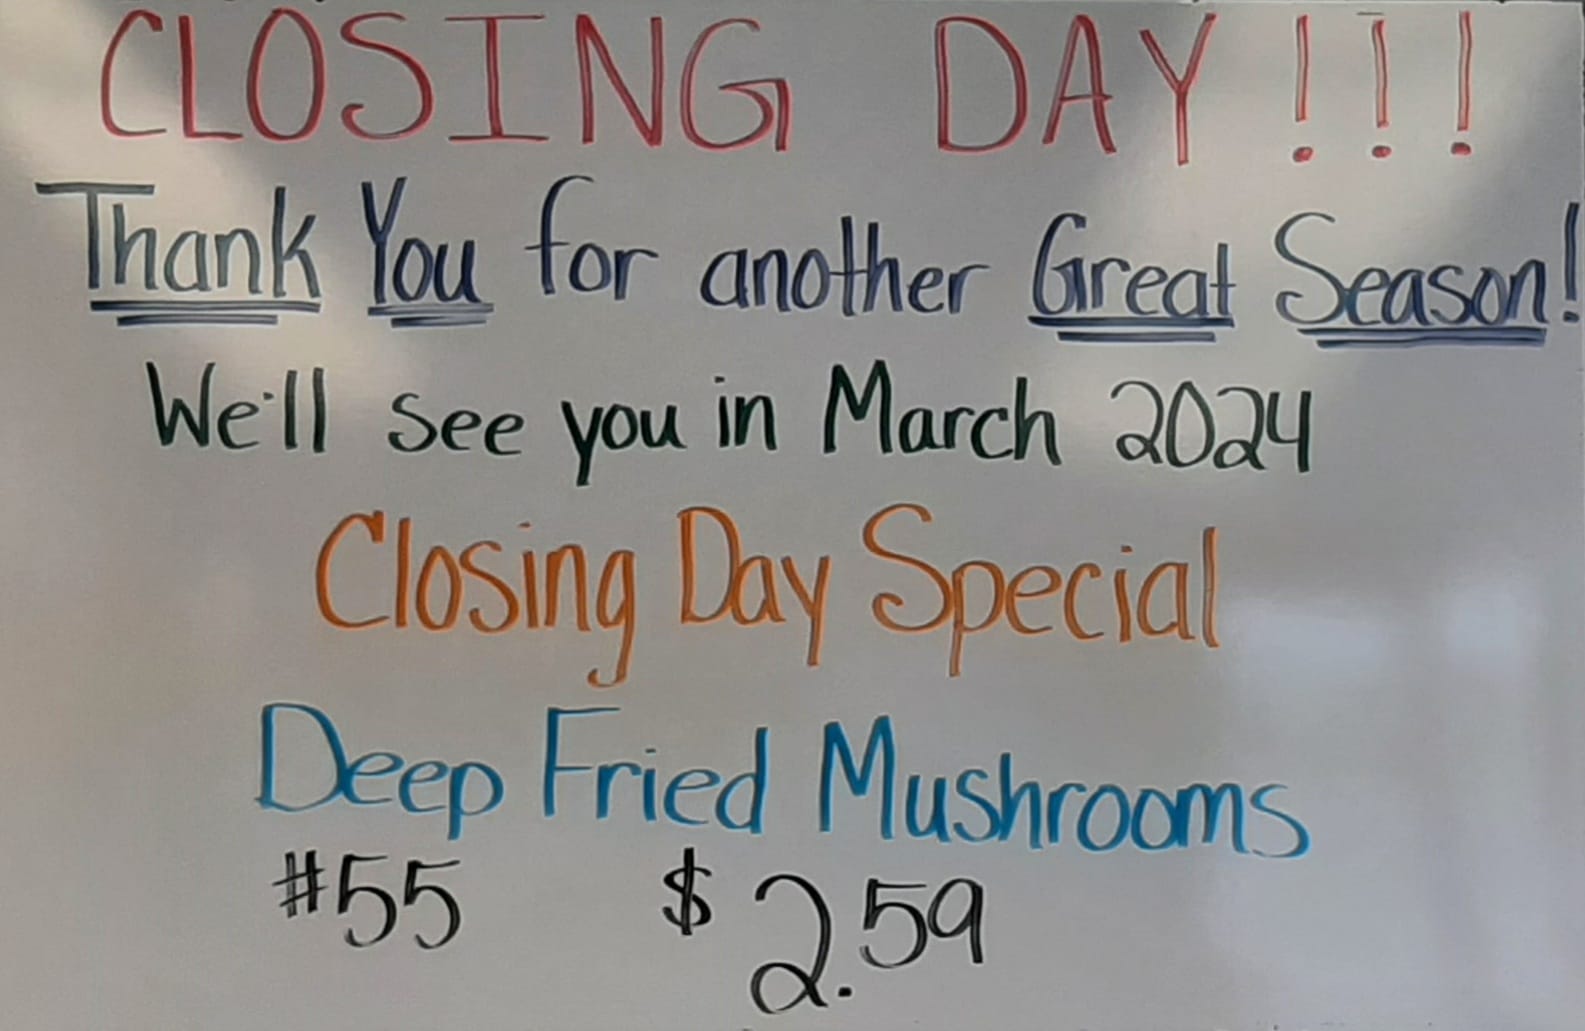 CLOSING DAY!!!
Thank You for another Great Season!
We'll see you in March 2024
Closing Day Special
Deep Fried Mushrooms
#55 $2.59